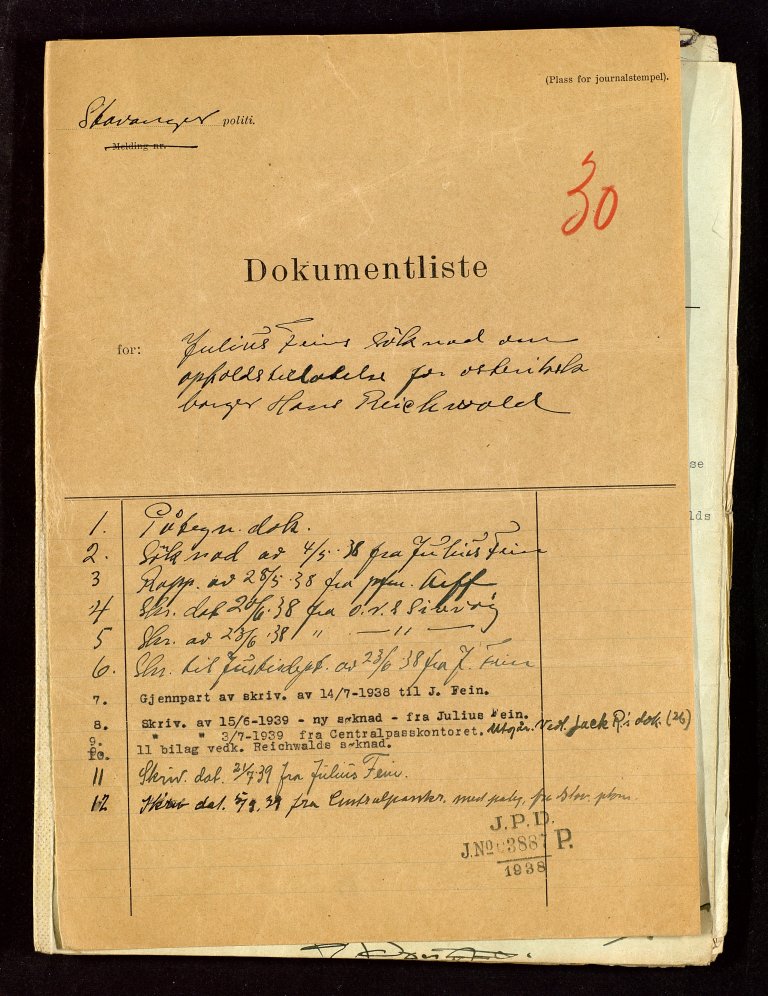 (Plass for journalstempel).
Stavanger politi.
Melding nr.
30
Dokumentliste
for: Julius Feins söknad om
opholdstillatelse for österiksk
borger Hans Reichwald
1. Påtegn. dok.
2. Söknad av 4/5-38 fra Julius Fein
3 Rapp. av 28/5-38 fra pfm.
4 Skr. dat 20/6-38 fra o.r.s
5 Skr. av 23/6-38 " — " —
6. Skr. til Justisdept. av 23/6-38 fra J. Fein
7. Gjennpart av skriv. av 14/7-1938 til J. Fein.
8. Skriv. av 15/6-1939 - ny søknad - fra Julius Fein.
9. " " 3/7-1939 fra Centralpasskontoret. Utgår. Vedl. Jack R's dok. (26)
10. 11 bilag vedk. Reichwalds søknad.
11 Skriv. dat. 24/7 39 fra Julius Fein.
12 Skriv dat. 5/8. 39 fra Centralpasskr. med påtg. fra Stav. pkm.
J.P.D.
J.No 03887 P.
1938
se
lds